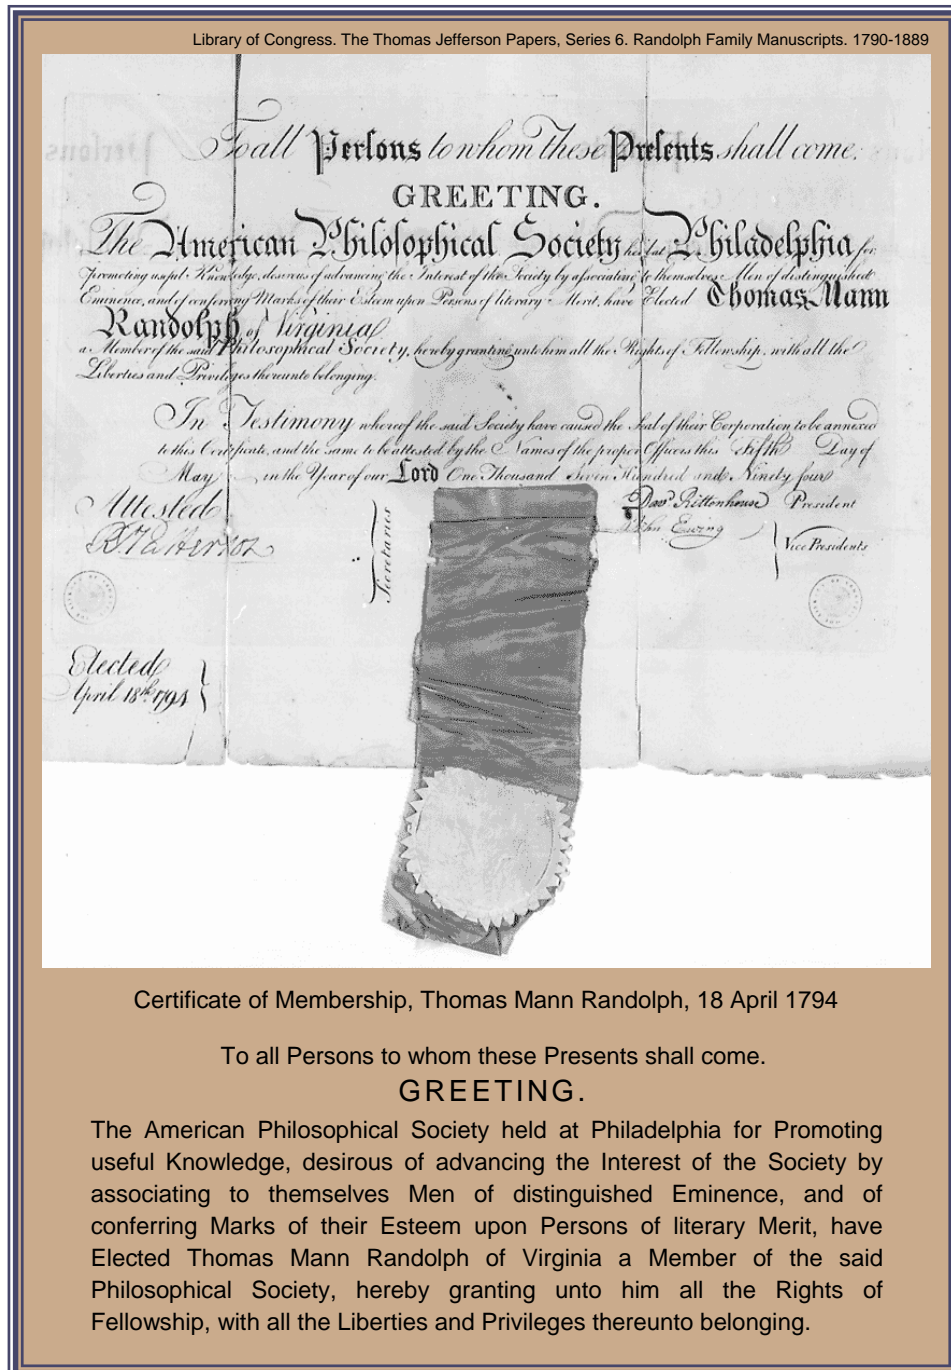 Library of Congress. The Thomas Jefferson Papers, Series 6. Randolph Family Manuscripts. 1790-1889
To all Persons to whom these Presents shall come.
GREETING.
The American Philosophical Society held at Philadelphia for
promoting useful Knowledge, desirous of advancing the Interest of the Society by associating to themselves Men of distinguished
Eminence, and of conferring Marks of their Esteem upon Persons of literary Merit, have Elected Thomas Mann
Randolph of Virginia
a Member of the said Philosophical Society, hereby granting unto him all the Rights of Fellowship, with all the
Liberties and Privileges thereunto belonging.
In Testimony whereof the said Society have caused the Seal of their Corporation to be annexed
to this Certificate, and the same to be attested by the Names of the proper Officers this Fifth Day of
May in the Year of our Lord One Thousand Seven Hundred and Ninety four
Attested
Secretaries
Davd Rittenhouse President
John Ewing
Vice Presidents
Elected
April 18th 1794
Certificate of Membership, Thomas Mann Randolph, 18 April 1794
To all Persons to whom these Presents shall come.
GREETING.
The American Philosophical Society held at Philadelphia for Promoting
useful Knowledge, desirous of advancing the Interest of the Society by
associating to themselves Men of distinguished Eminence, and of
conferring Marks of their Esteem upon Persons of literary Merit, have
Elected Thomas Mann Randolph of Virginia a Member of the said
Philosophical Society, hereby granting unto him all the Rights of
Fellowship, with all the Liberties and Privileges thereunto belonging.